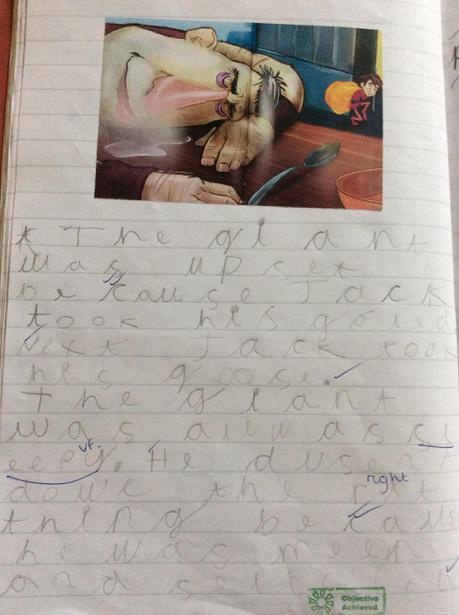 The giant
was upset
because Jack
took his
Next Jack took
his goose.
The giant
was allwas sl
eepy. He dusent
right
dowe the rit
thing becaus
he was meen
and
Objective
Achieved